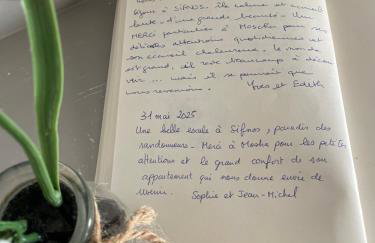 séjour à SIFNOS, île calme et accueil
lante - d'une grande beauté - Un
MERCI particulier à Moscha pour ses
délicates attentions quotidiennes et
son accueil chaleureux. Le monde
est grand, il reste beaucoup à décou
vrir ... mais il se pourrait que
nous revenions. Yves et Edith
31 mai 2025
Une belle escale à Sifnos, paradis des
randonneurs - Merci à Mosha pour les petites
attentions et le grand confort de son
appartement qui nous donne envie de
revenir. Sophie et Jean-Michel